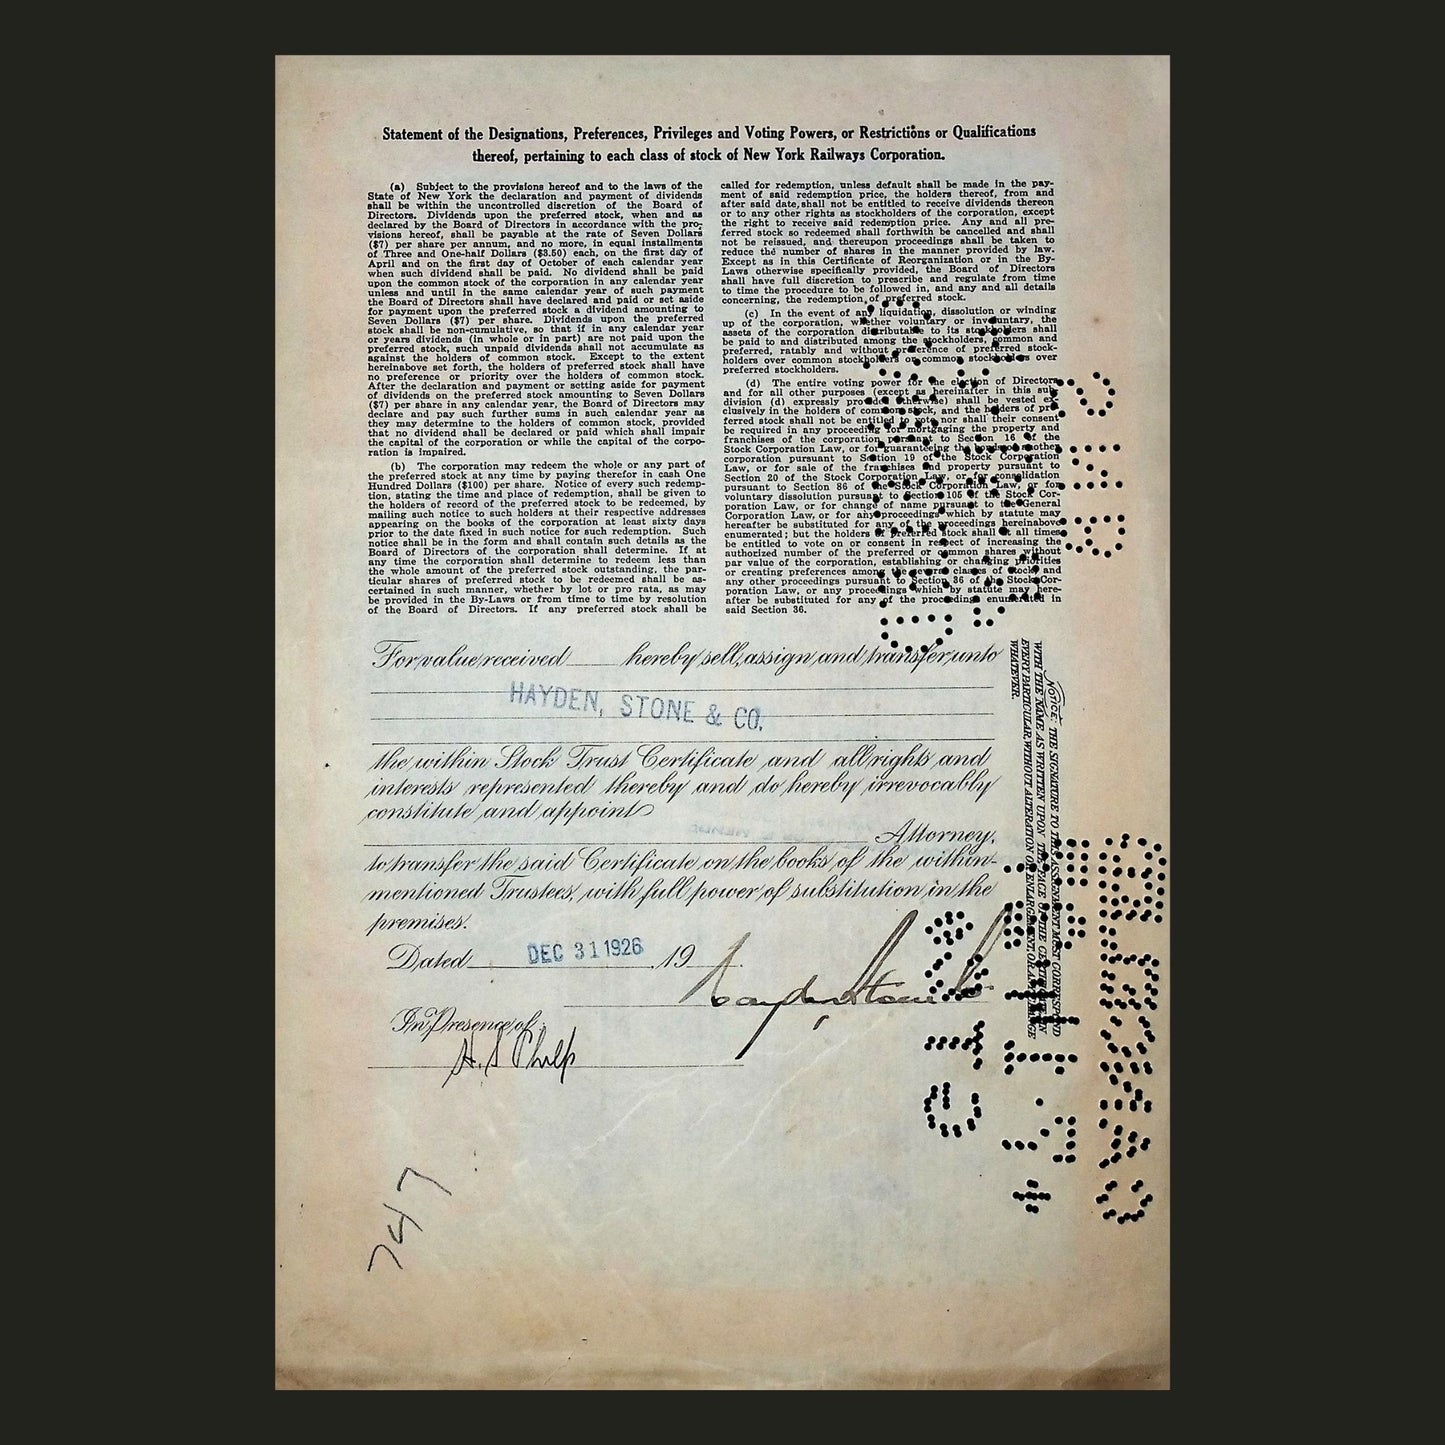 Statement of the Designations, Preferences, Privileges and Voting Powers, or Restrictions or Qualifications
thereof, pertaining to each class of stock of New York Railways Corporation.
(a) Subject to the provisions hereof and to the laws of the
State of New York the declaration and payment of dividends
shall be within the uncontrolled discretion of the Board of
Directors. Dividends upon the preferred stock, when and as
declared by the Board of Directors in accordance with the pro-
visions hereof, shall be payable at the rate of Seven Dollars
($7) per share per annum, and no more, in equal installments
of Three and One-half Dollars ($3.50) each, on the first day of
April and on the first day of October of each calendar year
when such dividend shall be paid. No dividend shall be paid
upon the common stock of the corporation in any calendar year
unless and until in the same calendar year of such payment
the Board of Directors shall have declared and paid or set aside
for payment upon the preferred stock a dividend amounting to
Seven Dollars ($7) per share. Dividends upon the preferred
stock shall be non-cumulative, so that if in any calendar year
or years dividends (in whole or in part) are not paid upon the
preferred stock, such unpaid dividends shall not accumulate as
against the holders of common stock. Except to the extent
hereinabove set forth, the holders of preferred stock shall have
no preference or priority over the holders of common stock.
After the declaration and payment or setting aside for payment
of dividends on the preferred stock amounting to Seven Dollars
($7) per share in any calendar year, the Board of Directors may
declare and pay such further sums in such calendar year as
they may determine to the holders of common stock, provided
that no dividend shall be declared or paid which shall impair
the capital of the corporation or while the capital of the corpo-
ration is impaired.
(b) The corporation may redeem the whole or any part of
the preferred stock at any time by paying therefor in cash One
Hundred Dollars ($100) per share. Notice of every such redemp-
tion, stating the time and place of redemption, shall be given to
the holders of record of the preferred stock to be redeemed, by
mailing such notice to such holders at their respective addresses
appearing on the books of the corporation at least sixty days
prior to the date fixed in such notice for such redemption. Such
notice shall be in the form and shall contain such details as the
Board of Directors of the corporation shall determine. If at
any time the corporation shall determine to redeem less than
the whole amount of the preferred stock outstanding, the par-
ticular shares of preferred stock to be redeemed shall be as-
certained in such manner, whether by lot or pro rata, as may
be provided in the By-Laws or from time to time by resolution
of the Board of Directors. If any preferred stock shall be
called for redemption, unless default shall be made in the pay-
ment of said redemption price, the holders thereof, from and
after said date, shall not be entitled to receive dividends thereon
or to any other rights as stockholders of the corporation, except
the right to receive said redemption price. Any and all pre-
ferred stock so redeemed shall forthwith be cancelled and shall
not be reissued, and thereupon proceedings shall be taken to
reduce the number of shares in the manner provided by law.
Except as in this Certificate of Reorganization or in the By-
Laws otherwise specifically provided, the Board of Directors
shall have full discretion to prescribe and regulate from time
to time the procedure to be followed in, and any and all details
concerning, the redemption of preferred stock.
(c) In the event of any liquidation, dissolution or winding
up of the corporation, whether voluntary or involuntary, the
assets of the corporation distributable to its stockholders shall
be paid to and distributed among the stockholders, common and
preferred, ratably and without preference of preferred stock-
holders over common stockholders or common stockholders over
preferred stockholders.
(d) The entire voting power for the election of Directors
and for all other purposes (except as hereinafter in this sub-
division (d) expressly provided otherwise) shall be vested ex-
clusively in the holders of common stock, and the holders of pre-
ferred stock shall not be entitled to vote nor shall their consent
be required in any proceeding for mortgaging the property and
franchises of the corporation pursuant to Section 16 of the
Stock Corporation Law, or for guaranteeing the bonds of another
corporation pursuant to Section 19 of the Stock Corporation
Law, or for sale of the franchises and property pursuant to
Section 20 of the Stock Corporation Law, or for consolidation
pursuant to Section 86 of the Stock Corporation Law, or for
voluntary dissolution pursuant to Section 105 of the Stock Cor-
poration Law, or for change of name pursuant to the General
Corporation Law, or for any proceedings which by statute may
hereafter be substituted for any of the proceedings hereinabove
enumerated; but the holders of preferred stock shall at all times
be entitled to vote on or consent in respect of increasing the
authorized number of the preferred or common shares without
par value of the corporation, establishing or changing priorities
or creating preferences among the several classes of stock, and
any other proceedings pursuant to Section 36 of the Stock Cor-
poration Law, or any proceedings which by statute may here-
after be substituted for any of the proceedings enumerated in
said Section 36.
For value received hereby sell, assign and transfer unto
HAYDEN, STONE & CO.
the within Stock Trust Certificate and all rights and
interests represented thereby and do hereby irrevocably
constitute and appoint
Attorney,
to transfer the said Certificate on the books of the within-
mentioned Trustees, with full power of substitution in the
premises.
Dated DEC 31 1926 19
Hayden, Stone & Co
In Presence of
H. S. Philp
NOTICE: THE SIGNATURE TO THIS ASSIGNMENT MUST CORRESPOND
WITH THE NAME AS WRITTEN UPON THE FACE OF THE CERTIFICATE IN
EVERY PARTICULAR, WITHOUT ALTERATION OR ENLARGEMENT OR ANY CHANGE
WHATEVER.
747